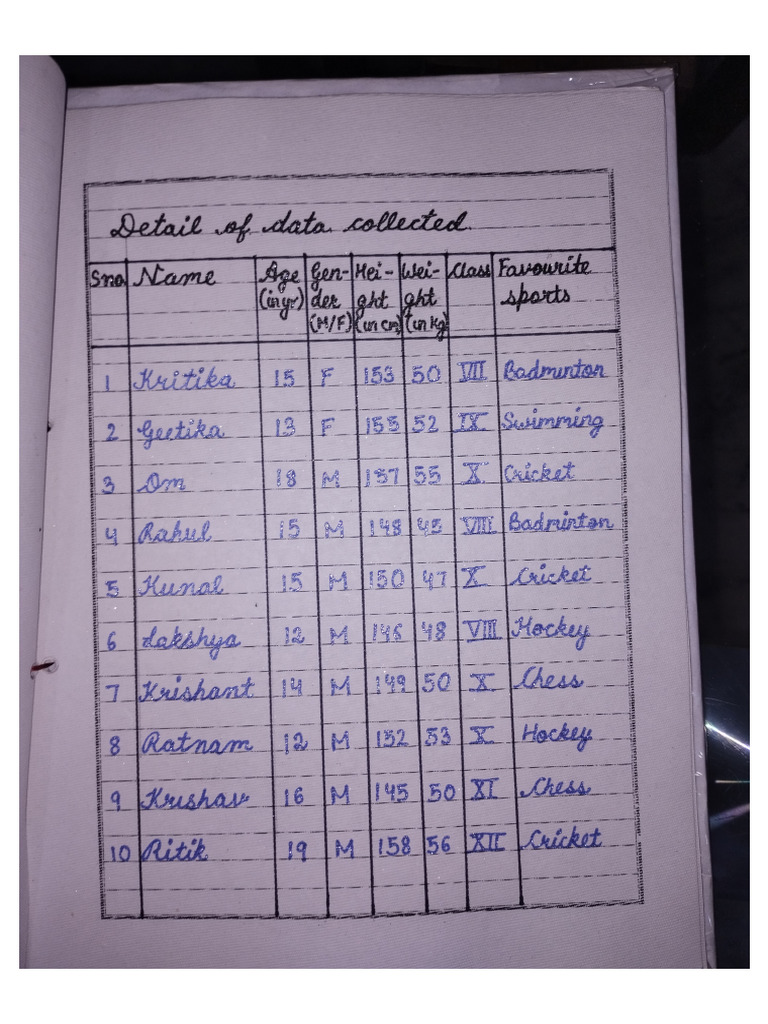 Detail of data collected.
Sno Name Age (in yr) Gen-der (M/F) Hei-ght (in cm) Wei-ght (in kg) Class Favourite sports
1 Kritika 15 F 153 50 VII Badminton
2 Geetika 13 F 155 52 IX Swimming
3 Om 18 M 157 55 X Cricket
4 Rahul 15 M 148 45 VIII Badminton
5 Kunal 15 M 150 47 X Cricket
6 Lakshya 12 M 146 48 VIII Hockey
7 Krishant 14 M 149 50 X Chess
8 Ratnam 12 M 152 53 X Hockey
9 Krishav 16 M 145 50 XI Chess
10 Ritik 19 M 158 56 XII Cricket